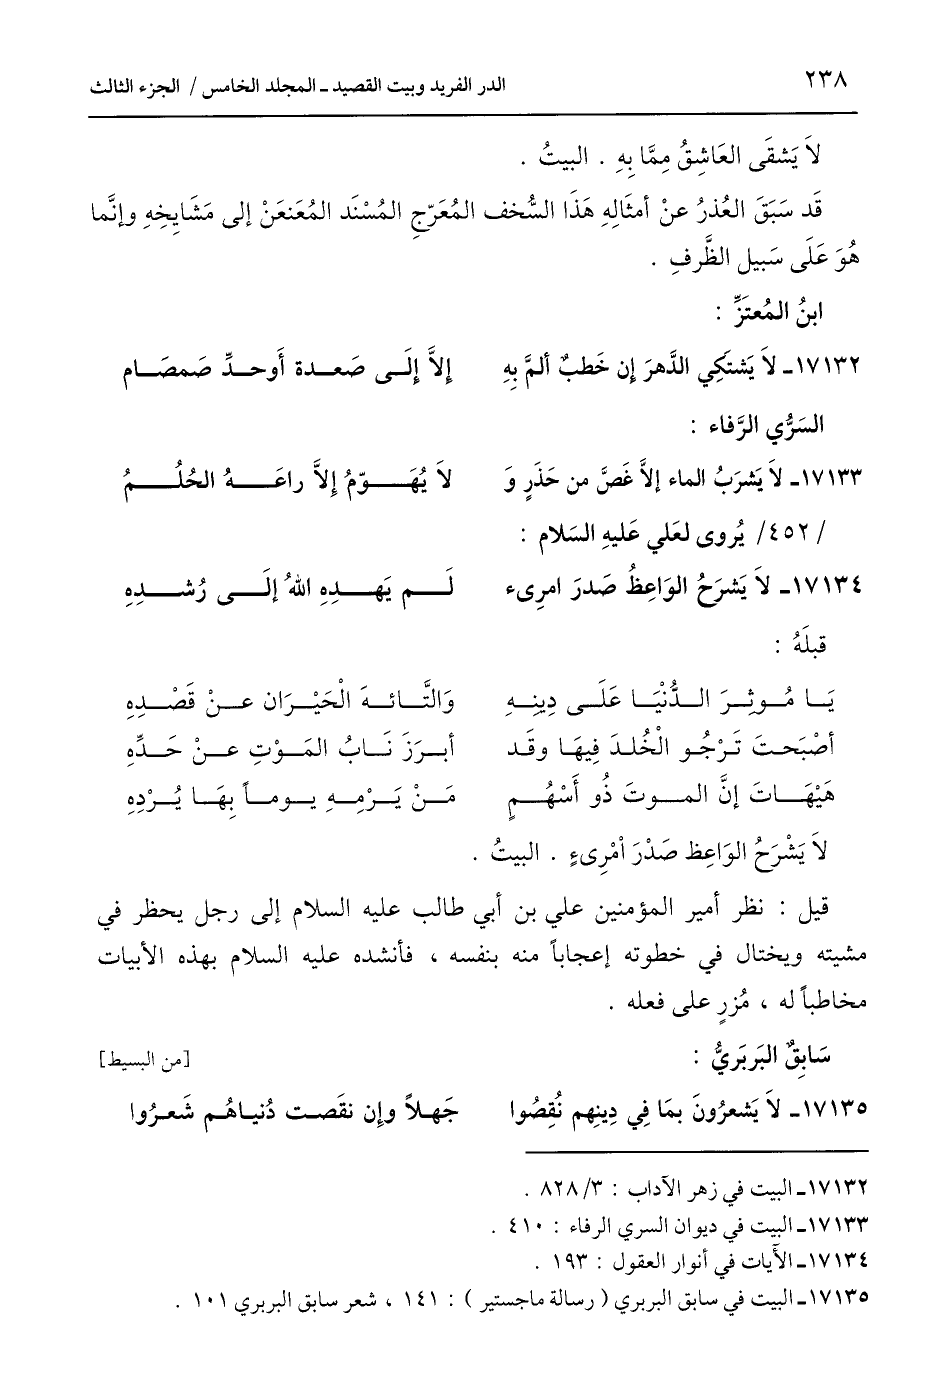 ٢٣٨ الدر الفريد وبيت القصيد ـ المجلد الخامس / الجزء الثالث
لاَ يَشقَى العَاشِقُ مِمَّا بِهِ . البيتُ .
قَد سَبَقَ العُذرُ عنْ أمثَالِهِ هَذَا السُّخف المُعَرّجِ المُسْنَد المُعَنعَنْ إلى مَشَايِخِهِ وإنَّما
هُوَ عَلَى سَبيل الظَّرفِ .
ابنُ المُعتَزِّ :
١٧١٣٢ـ لاَ يَشتَكِي الدَّهرَ إن خَطبٌ ألمَّ بِهِ إلاَّ إلَـى صَعـدة أَوحـدِّ صَمصَـام
السَرُّي الرَّفاء :
١٧١٣٣ـ لاَ يَشرَبُ الماء إلاَّ غَصَّ من حَذَرٍ وَ لاَ يُهَـــوِّمُ إلاَّ راعَـــهُ الحُلُـــمُ
/ ٤٥٢/ يُروى لعَلي عَليهِ السَلام :
١٧١٣٤ـ لاَ يَشرَحُ الوَاعِظُ صَدرَ امرِىء لَــم يَهــدِهِ اللهُ إلَــى رُشــدِهِ
قبلَهُ :
يَـا مُـوثِـرَ الـدُّنْيَـا عَلَـى دِينِـهِ وَالتَّـائِـهَ الْحَيْـرَان عـنْ قَصْـدِهِ
أصْبَحـتَ تَـرْجُـو الْخُلدَ فِيهَـا وقَـد أبـرَزَ نَـابُ المَـوْتِ عـنْ حَـدِّهِ
هَيْهَـاتَ إنَّ المـوتَ ذُو أَسْهُـمٍ مَـنْ يَـرْمِـهِ يـومـاً بِهَـا يُـرْدِهِ
لاَ يَشْرَحُ الوَاعِظ صَدْرَ اْمْرِىءٍ . البيتُ .
قيل : نظر أمير المؤمنين علي بن أبي طالب عليه السلام إلى رجل يحظر في
مشيته ويختال في خطوته إعجاباً منه بنفسه ، فأنشده عليه السلام بهذه الأبيات
مخاطباً له ، مُزرٍ على فعله .
سَابِقٌ البَربَريُّ : [من البسيط]
١٧١٣٥ـ لاَ يَشعرُونَ بمَا فِي دِينِهم نُقِصُوا جَهـلاً وإن نقَصـت دُنيـاهُـم شَعـرُوا
١٧١٣٢ـ البيت في زهر الآداب : ٣/ ٨٢٨ .
١٧١٣٣ـ البيت في ديوان السري الرفاء : ٤١٠ .
١٧١٣٤ـ الأيات في أنوار العقول : ١٩٣ .
١٧١٣٥ـ البيت في سابق البربري ( رسالة ماجستير ) : ١٤١ ، شعر سابق البربري ١٠١ .